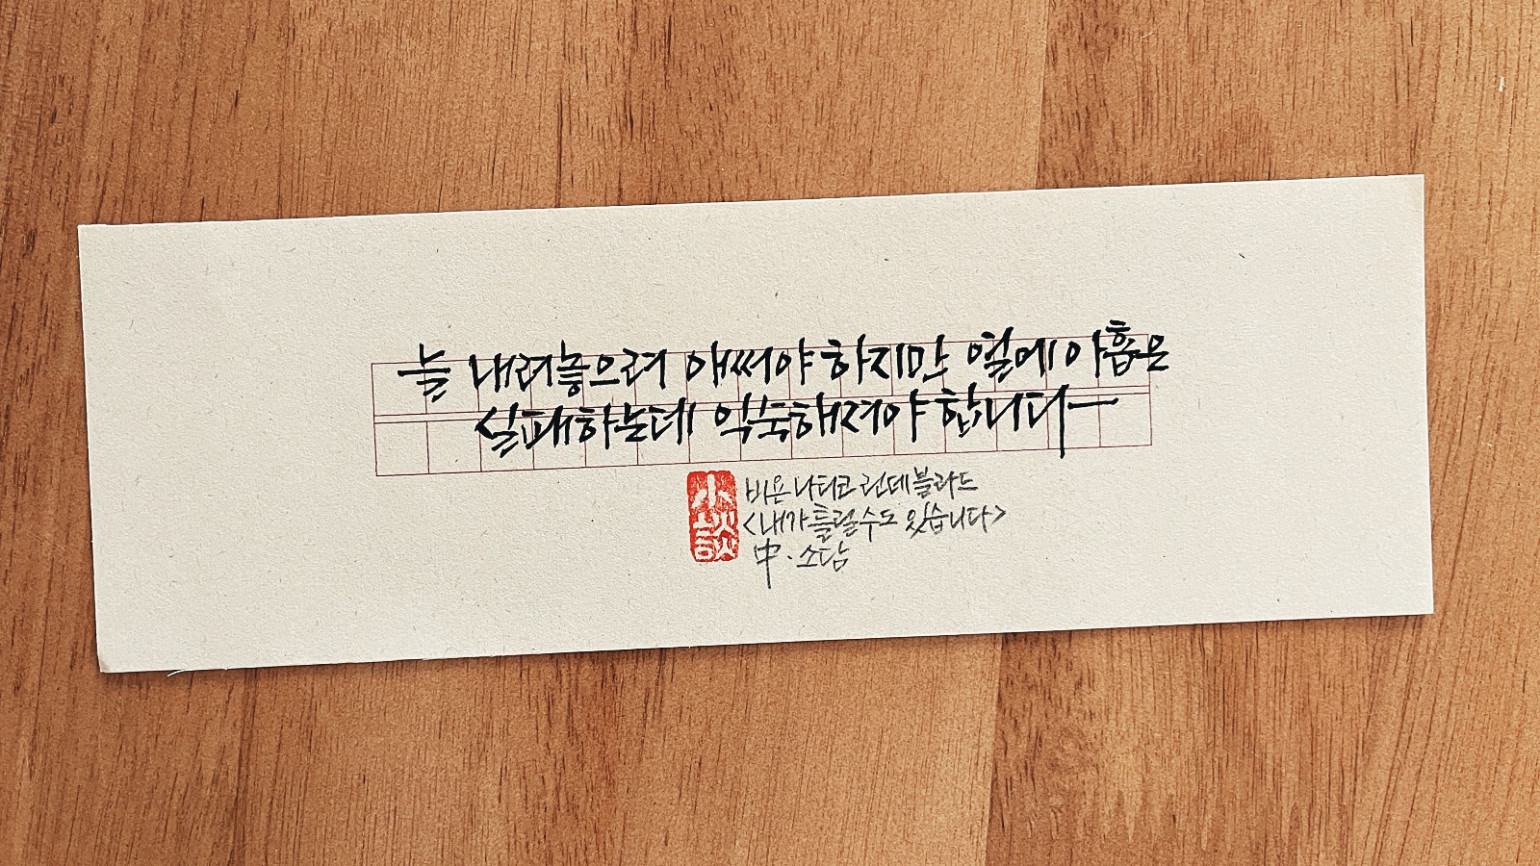 늘 내려놓으려 애써야 하지만 열에 아홉은
실패하는데 익숙해져야 합니다
小談
비욘 나티코 린데블라드
<내가 틀릴 수도 있습니다>
中 · 소담